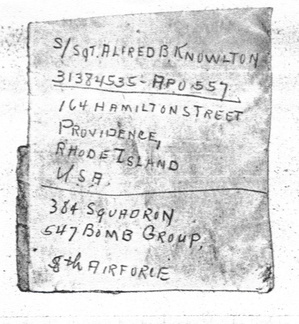 S/SGT. ALFRED B. KNOWLTON
31384535 - APO 557
164 HAMILTON STREET
PROVIDENCE,
RHODE ISLAND
U.S.A.
384 SQUADRON
547 BOMB GROUP.
8th AIRFORCE